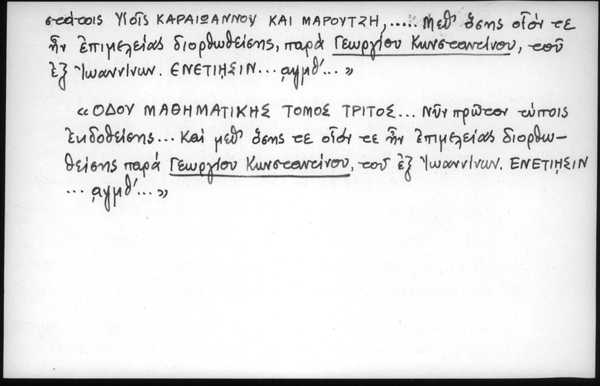 στάτοις Υἱοῖς ΚΑΡΑΙΩΑΝΝΟΥ ΚΑΙ ΜΑΡΟΥΤΖΗ, ..... Μεθ' ὅσης οἷόν τε
ἦν ἐπιμελείας διορθωθείσης, παρά Γεωργίου Κωνσταντίνου, τοῦ
ἐξ Ἰωαννίνων. ΕΝΕΤΙῌΣΙΝ... αψμθ'... »
« ΟΔΟΥ ΜΑΘΗΜΑΤΙΚΗΣ ΤΟΜΟΣ ΤΡΙΤΟΣ... Νῦν πρῶτον τύποις
ἐκδοθείσης... Καί μεθ' ὅσης τε οἷόν τε ἦν ἐπιμελείας διορθω-
θείσης παρά Γεωργίου Κωνσταντίνου, τοῦ ἐξ Ἰωαννίνων. ΕΝΕΤΙῌΣΙΝ
... αψμθ'... »